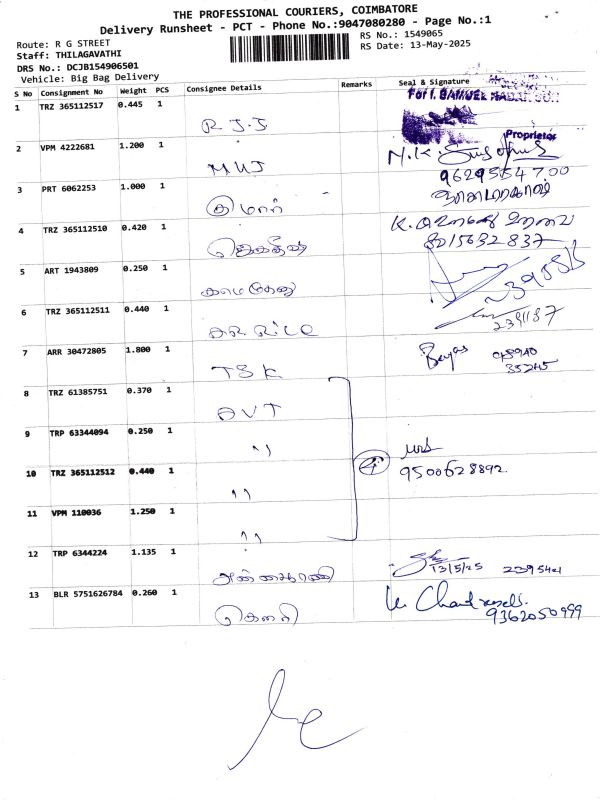 THE PROFESSIONAL COURIERS, COIMBATORE
Delivery Runsheet - PCT - Phone No.:9047080280 - Page No.:1
Route: R G STREET
RS No.: 1549065
Staff: THILAGAVATHI
RS Date: 13-May-2025
DRS No.: DCJB154906501
Vehicle: Big Bag Delivery
S No Consignment No Weight PCS Consignee Details Remarks Seal & Signature
1 TRZ 365112517 0.445 1 R J J
Proprietor
2 VPM 4222681 1.200 1 MUJ
3 PRT 6062253 1.000 1 குமார்
4 TRZ 365112510 0.420 1
8015632837
5 ART 1943809 0.250 1
6 TRZ 365112511 0.440 1
7 ARR 30472805 1.800 1 TSK
8 TRZ 61385751 0.370 1 AVT
9 TRP 63344094 0.250 1 "
4
10 TRZ 365112512 0.440 1 "
9500628892.
11 VPM 110036 1.250 1 "
12 TRP 6344224 1.135 1
13/5/25
13 BLR 5751626784 0.260 1 கௌரி
9362050999